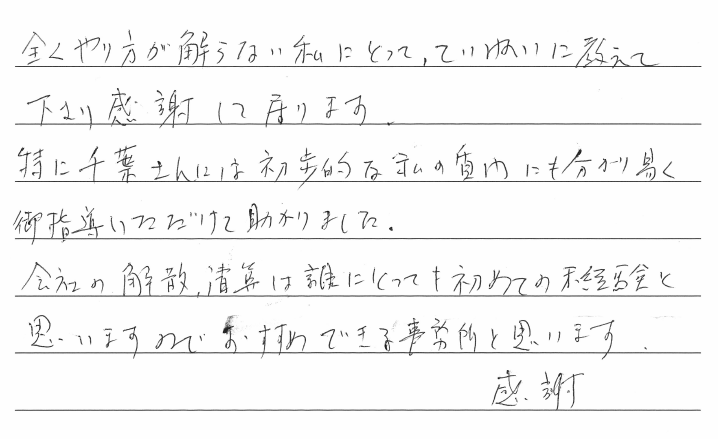 全くやり方が解らない私にとって,ていねいに教えて
下さり感謝して居ります.
特に千葉さんには初歩的な私の質問にも分かり易く
御指導いただけて助かりました.
会社の解散,清算は誰にとっても初めての未経験と
思いますのでおすすめできる事務所と思います.
感謝